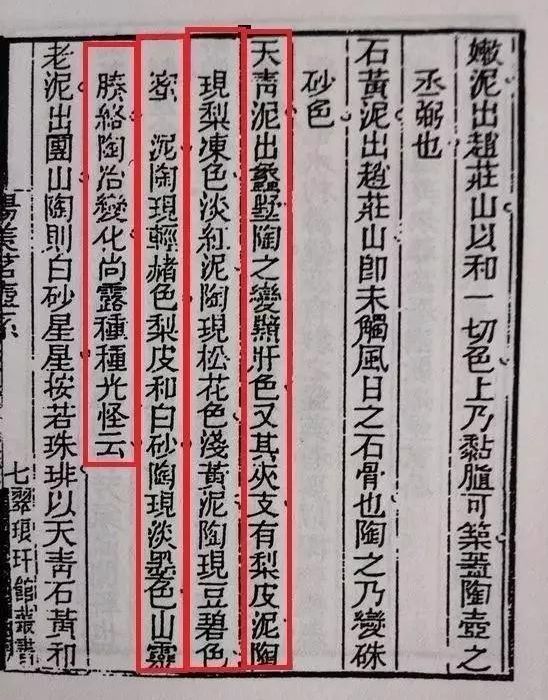 嫩泥出趙莊山以和一切色上乃黏脂可築盖陶壺之
丞弼也
石黃泥出趙莊山即未觸風日之石骨也陶之乃變硃
砂色
天青泥出蠡墅陶之變黯肝色又其夾支有梨皮泥陶
現梨凍色淡紅泥陶現松花色淺黃泥陶現豆碧色
蜜 泥陶現輕赭色梨皮和白砂陶現淡墨色山靈
腠絡陶冶變化尚露種種光怪云
老泥出團山陶則白砂星星按若珠琲以天青石黃和
陽羨茗壺系
七
翠琅玕館叢書